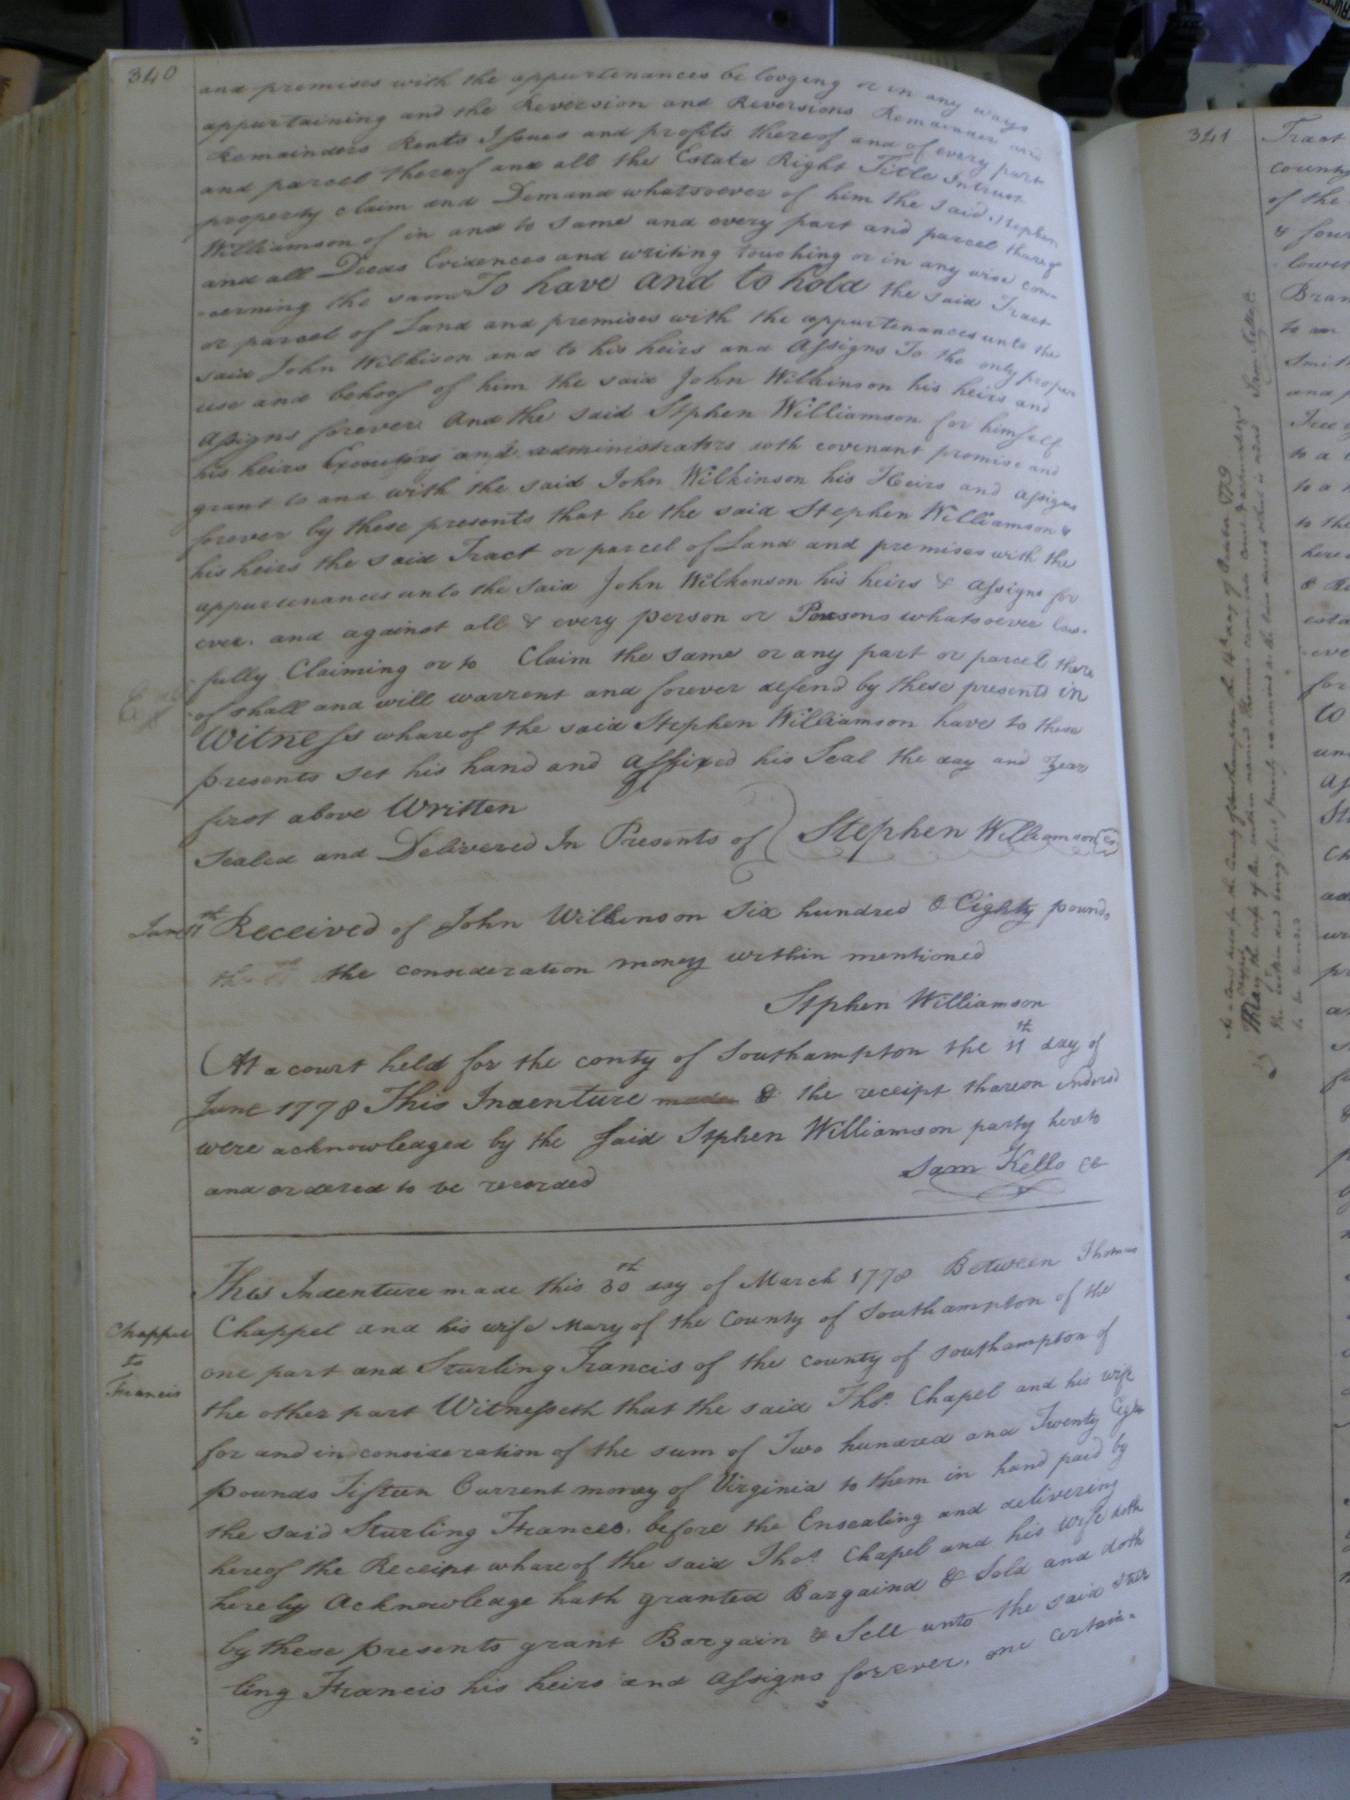 340
and premises with the appurtenances belonging or in any ways
appurtaining and the Reversion and Reversions Remainder and
Remainders Rents Issues and profits thereof and of every part
and parcel thereof and all the Estate Right Title Intrust
property claim and Demand whatsoever of him the said Stephen
Williamson of in and to same and every part and parcel thareof
and all Deeds Evidences and writing touching or in any wise con-
-cerning the same To have and to hold the said Tract
or parcel of Land and premises with the appurtenances unto the
said John Wilkison and to his heirs and Assigns To the only proper
use and behoof of him the said John Wilkinson his heirs and
Assigns forever And the said Stphen Williamson for himself
his heirs Executors and administrators doth covenant promise and
grant to and with the said John Wilkinson his Heirs and assigns
forever by these presents that he the said Stephen Williamson &
his heirs the said Tract or parcel of Land and premises with the
appurtenances unto the said John Wilkenson his heirs & assigns for
ever. and against all & every person or Persons whatsoever law-
-fully Claiming or to Claim the same or any part or parcel there
-of shall and will warrent and forever defend by these presents in
Witness whareof the said Stephen Williamson have to these
presents set his hand and affixed his Seal the day and year
first above Written
Sealed and Delivered In Presents of } Stephen Williamson
June 11th Received of John Wilkinson six hundred & Eighty pounds
the consideration money within mentioned
Stphen Williamson
At a court held for the conty of Southampton the 11th day of
June 1778 This Indenture made & the receipt thareon indorsd
were acknowledged by the said Stphen Williamson party hereto
and ordered to be recorded
Sam Kello CC
Chappel
to
Francis
This Indenture made this 30th day of March 1778 Between Thomas
Chappel and his wife Mary of the County of Southampton of the
one part and Sturling Francis of the county of Southampton of
the other part Witnesseth that the said Thos. Chapel and his wife
for and in consideration of the sum of Two hundred and Twenty Eight
pounds Fifteen Current money of Virginia to them in hand paid by
the said Sturling Frances. before the Ensealing and delivering
hereof the Receipt whareof the said Thos. Chapel and his wife doth
hereby Acknowledge hath granted Bargaind & Sold and doth
by these presents grant Bargain & Sell unto the said Stur
ling Francis his heirs and Assigns forever. one certain.
341
Tract
county
of the
& four
lower
Bran
to an
Smith
and
At a Court held for the County of Southampton the 14th day of
Mary the wife of the within named Thomas
to be recorded
Sam Kello